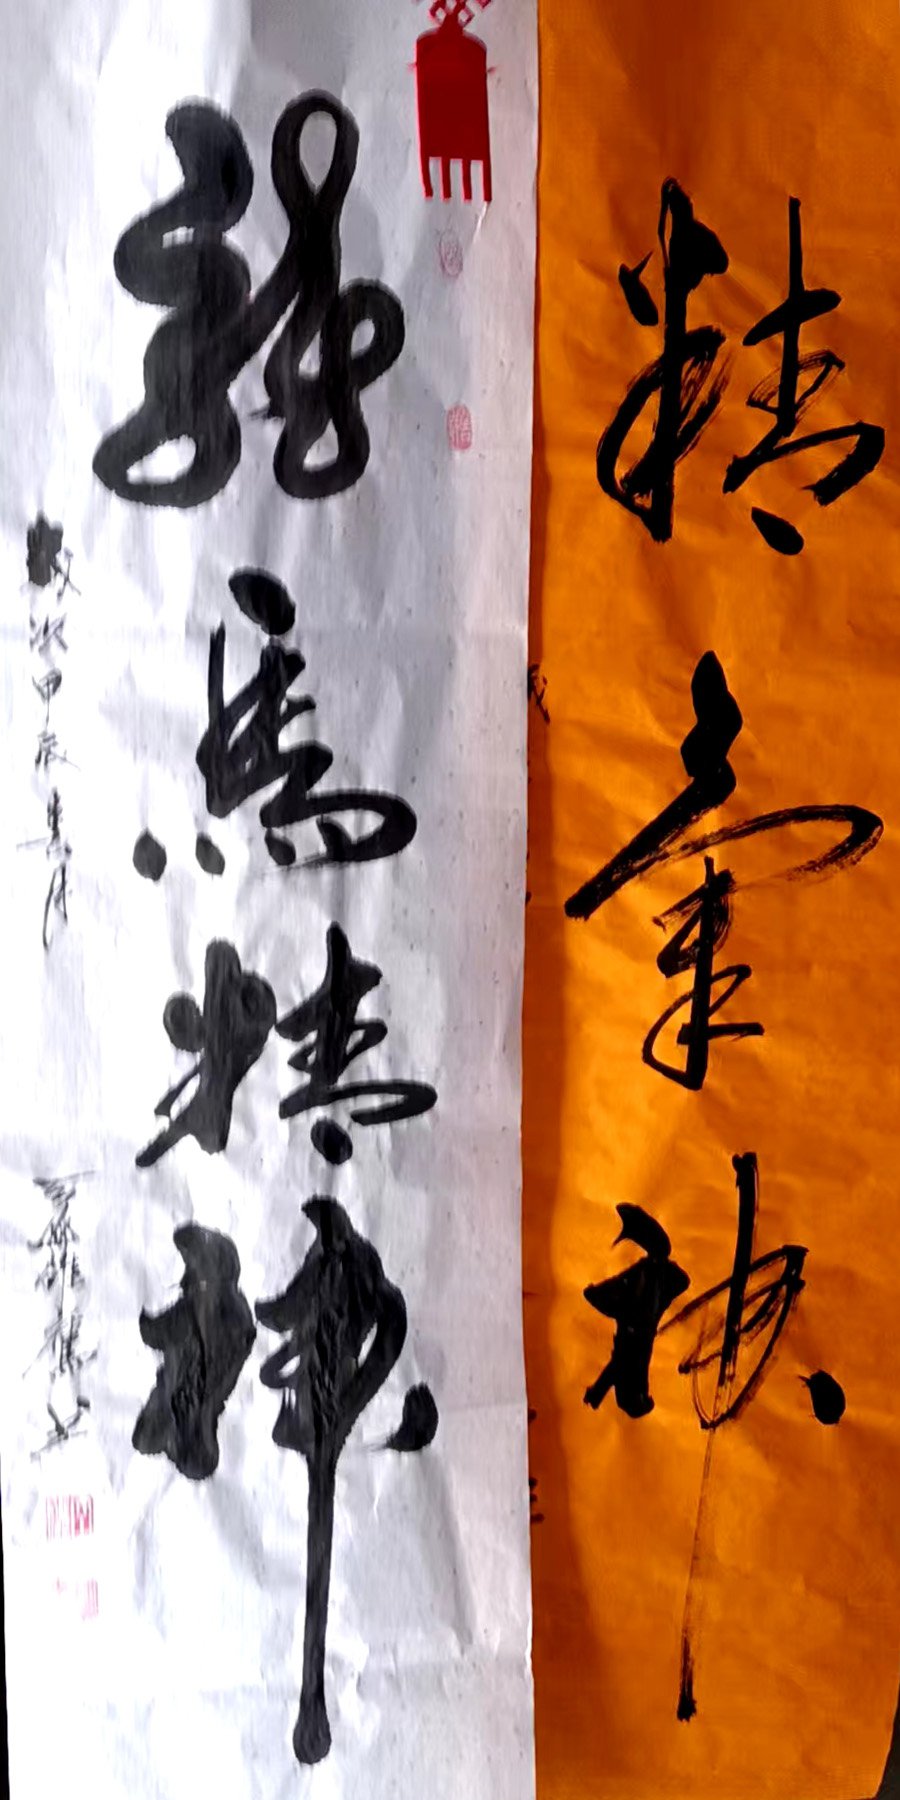 精氣神
龍馬精神
歲次甲辰春月